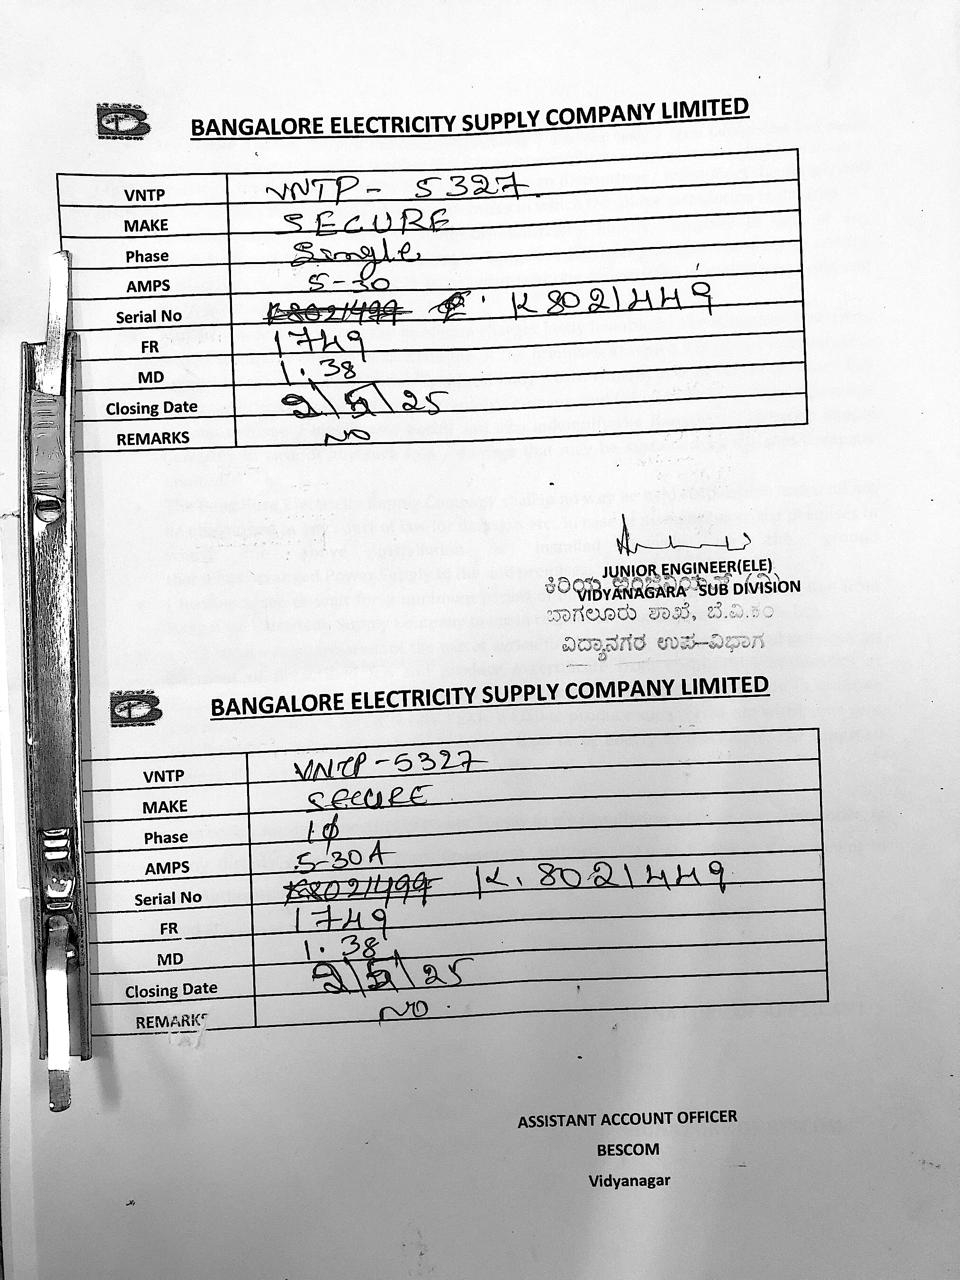 BESCOM
BANGALORE ELECTRICITY SUPPLY COMPANY LIMITED
VNTP VNTP - 5327
MAKE SECURE
Phase Single
AMPS 5-30
Serial No K8021499 K 8021449
FR 1749
MD 1.38
Closing Date 2/5/25
REMARKS NO
JUNIOR ENGINEER(ELE)
VIDYANAGARA SUB DIVISION
ಬಾಗಲೂರು ಶಾಖೆ, ಬೆ.ವಿ.ಕಂ
ವಿದ್ಯಾನಗರ ಉಪ-ವಿಭಾಗ
BESCOM
BANGALORE ELECTRICITY SUPPLY COMPANY LIMITED
VNTP VNTP - 5327
MAKE SECURE
Phase 1ϕ
AMPS 5-30A
Serial No K8021499 K. 8021449
FR 1749
MD 1.38
Closing Date 2/5/25
REMARKS NO
ASSISTANT ACCOUNT OFFICER
BESCOM
Vidyanagar